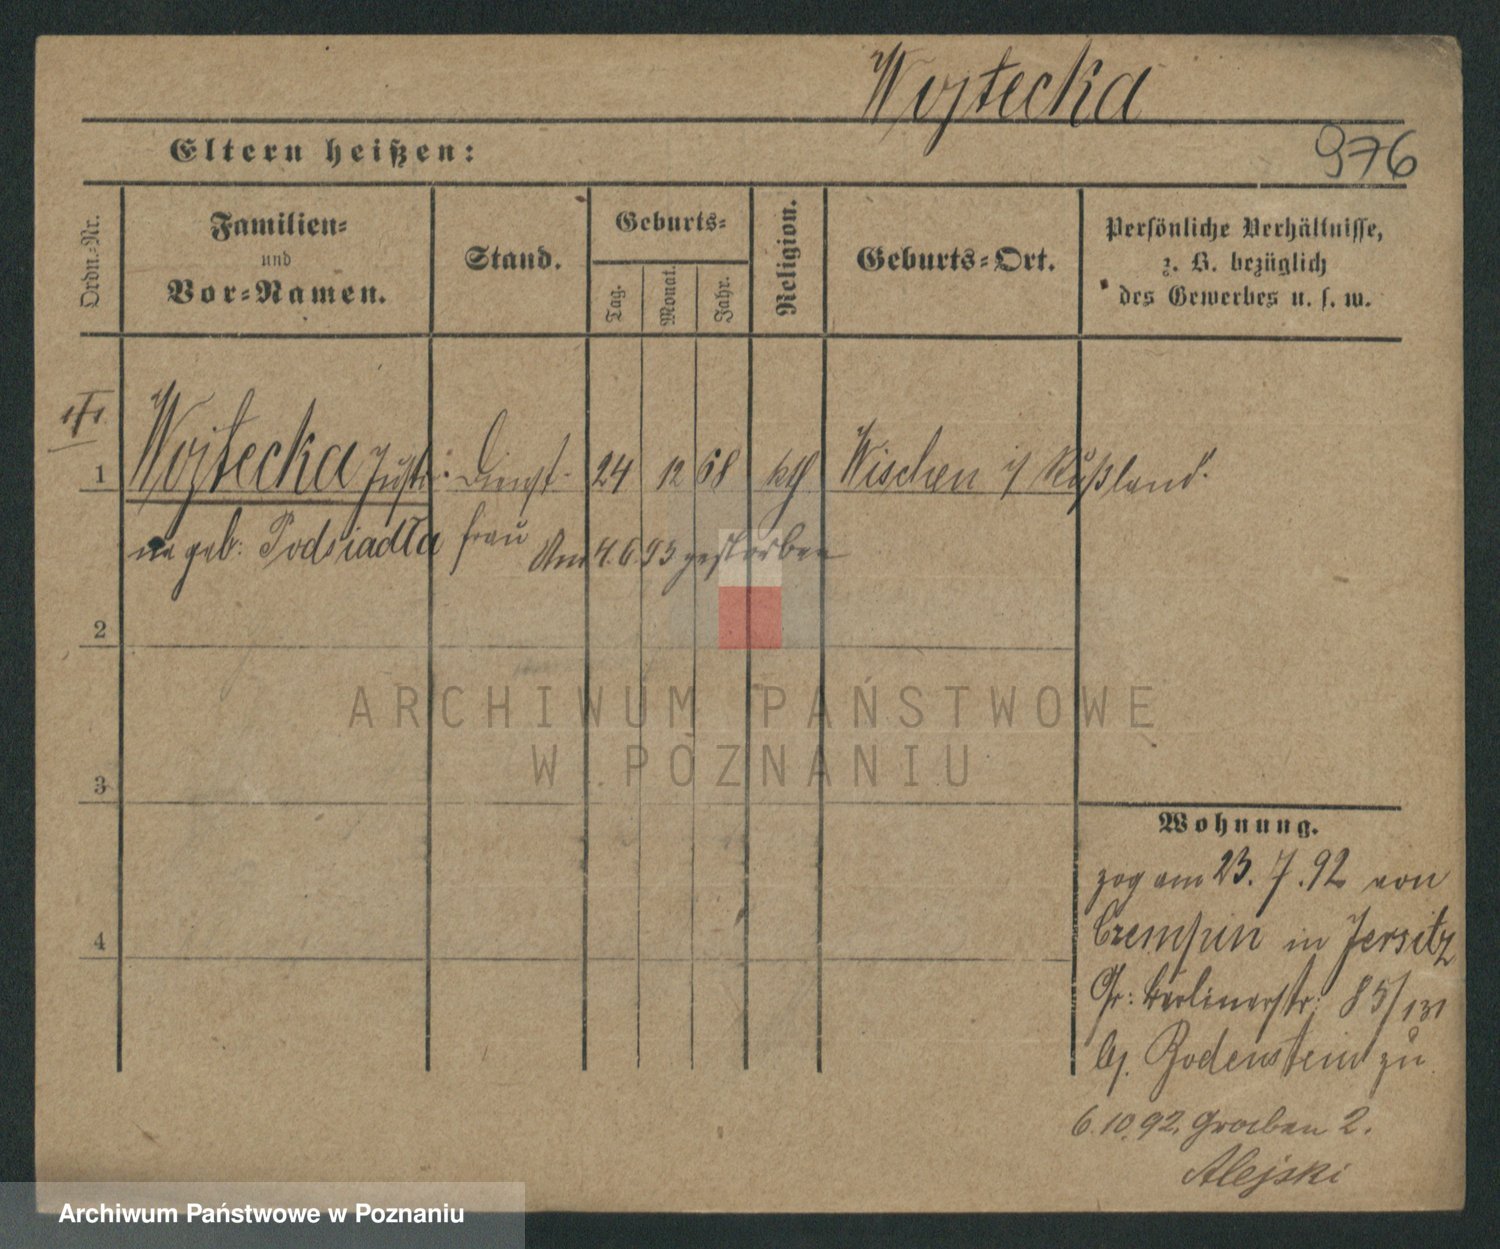 Wojtecka
976
Eltern heißen:
Ordn.-Nr.
Familien-
und
Vor-Namen.
Stand.
Geburts-
Tag.
Monat.
Jahr.
Religion.
Geburts-Ort.
Persönliche Verhältnisse,
z. B. bezüglich
des Gewerbes u. s. w.
1 Wojtecka Justi- Dienst- 24 12 68 kth Wischen i/ Rußland.
ne geb: Podsiadła frau Am 4.6.93 gestorben
2
3
4
ARCHIWUM PAŃSTWOWE
W POZNANIU
Wohnung.
zog am 23.7.92 von
Czempin in Jersitz
Gr: Berlinerstr: 85/131
bj. Bodenstein zu
6.10.92. Graben 2.
Alejski
Archiwum Państwowe w Poznaniu